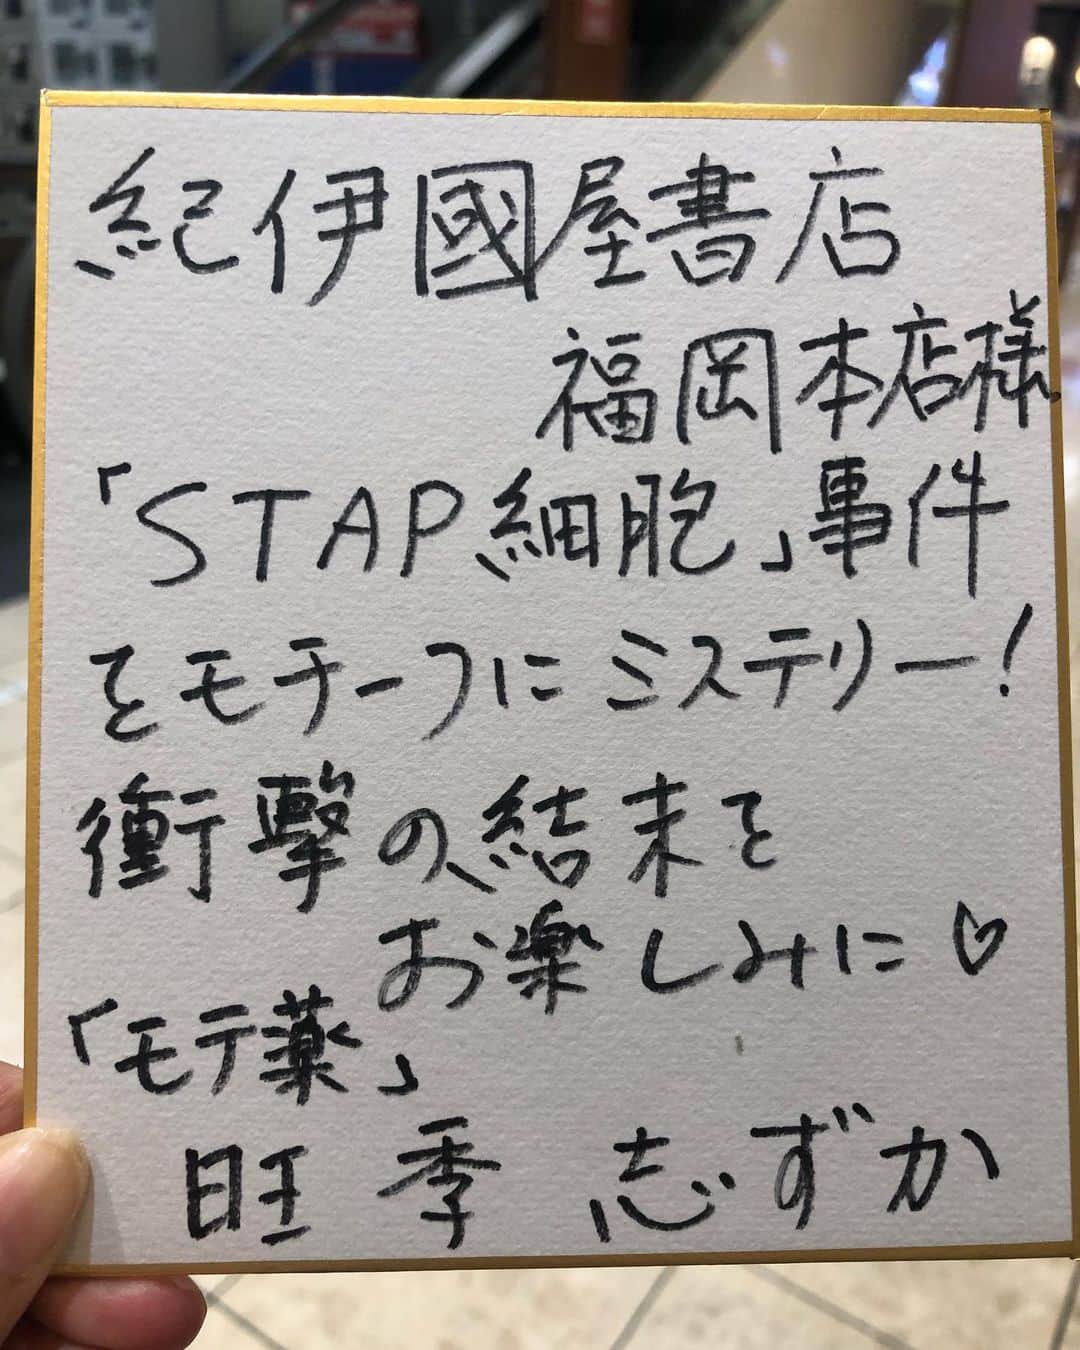 紀伊國屋書店
福岡本店様
「STAP細胞」事件
をモチーフにミステリー!
衝撃の結末を
お楽しみに♡
「モテ薬」
旺季志ずか